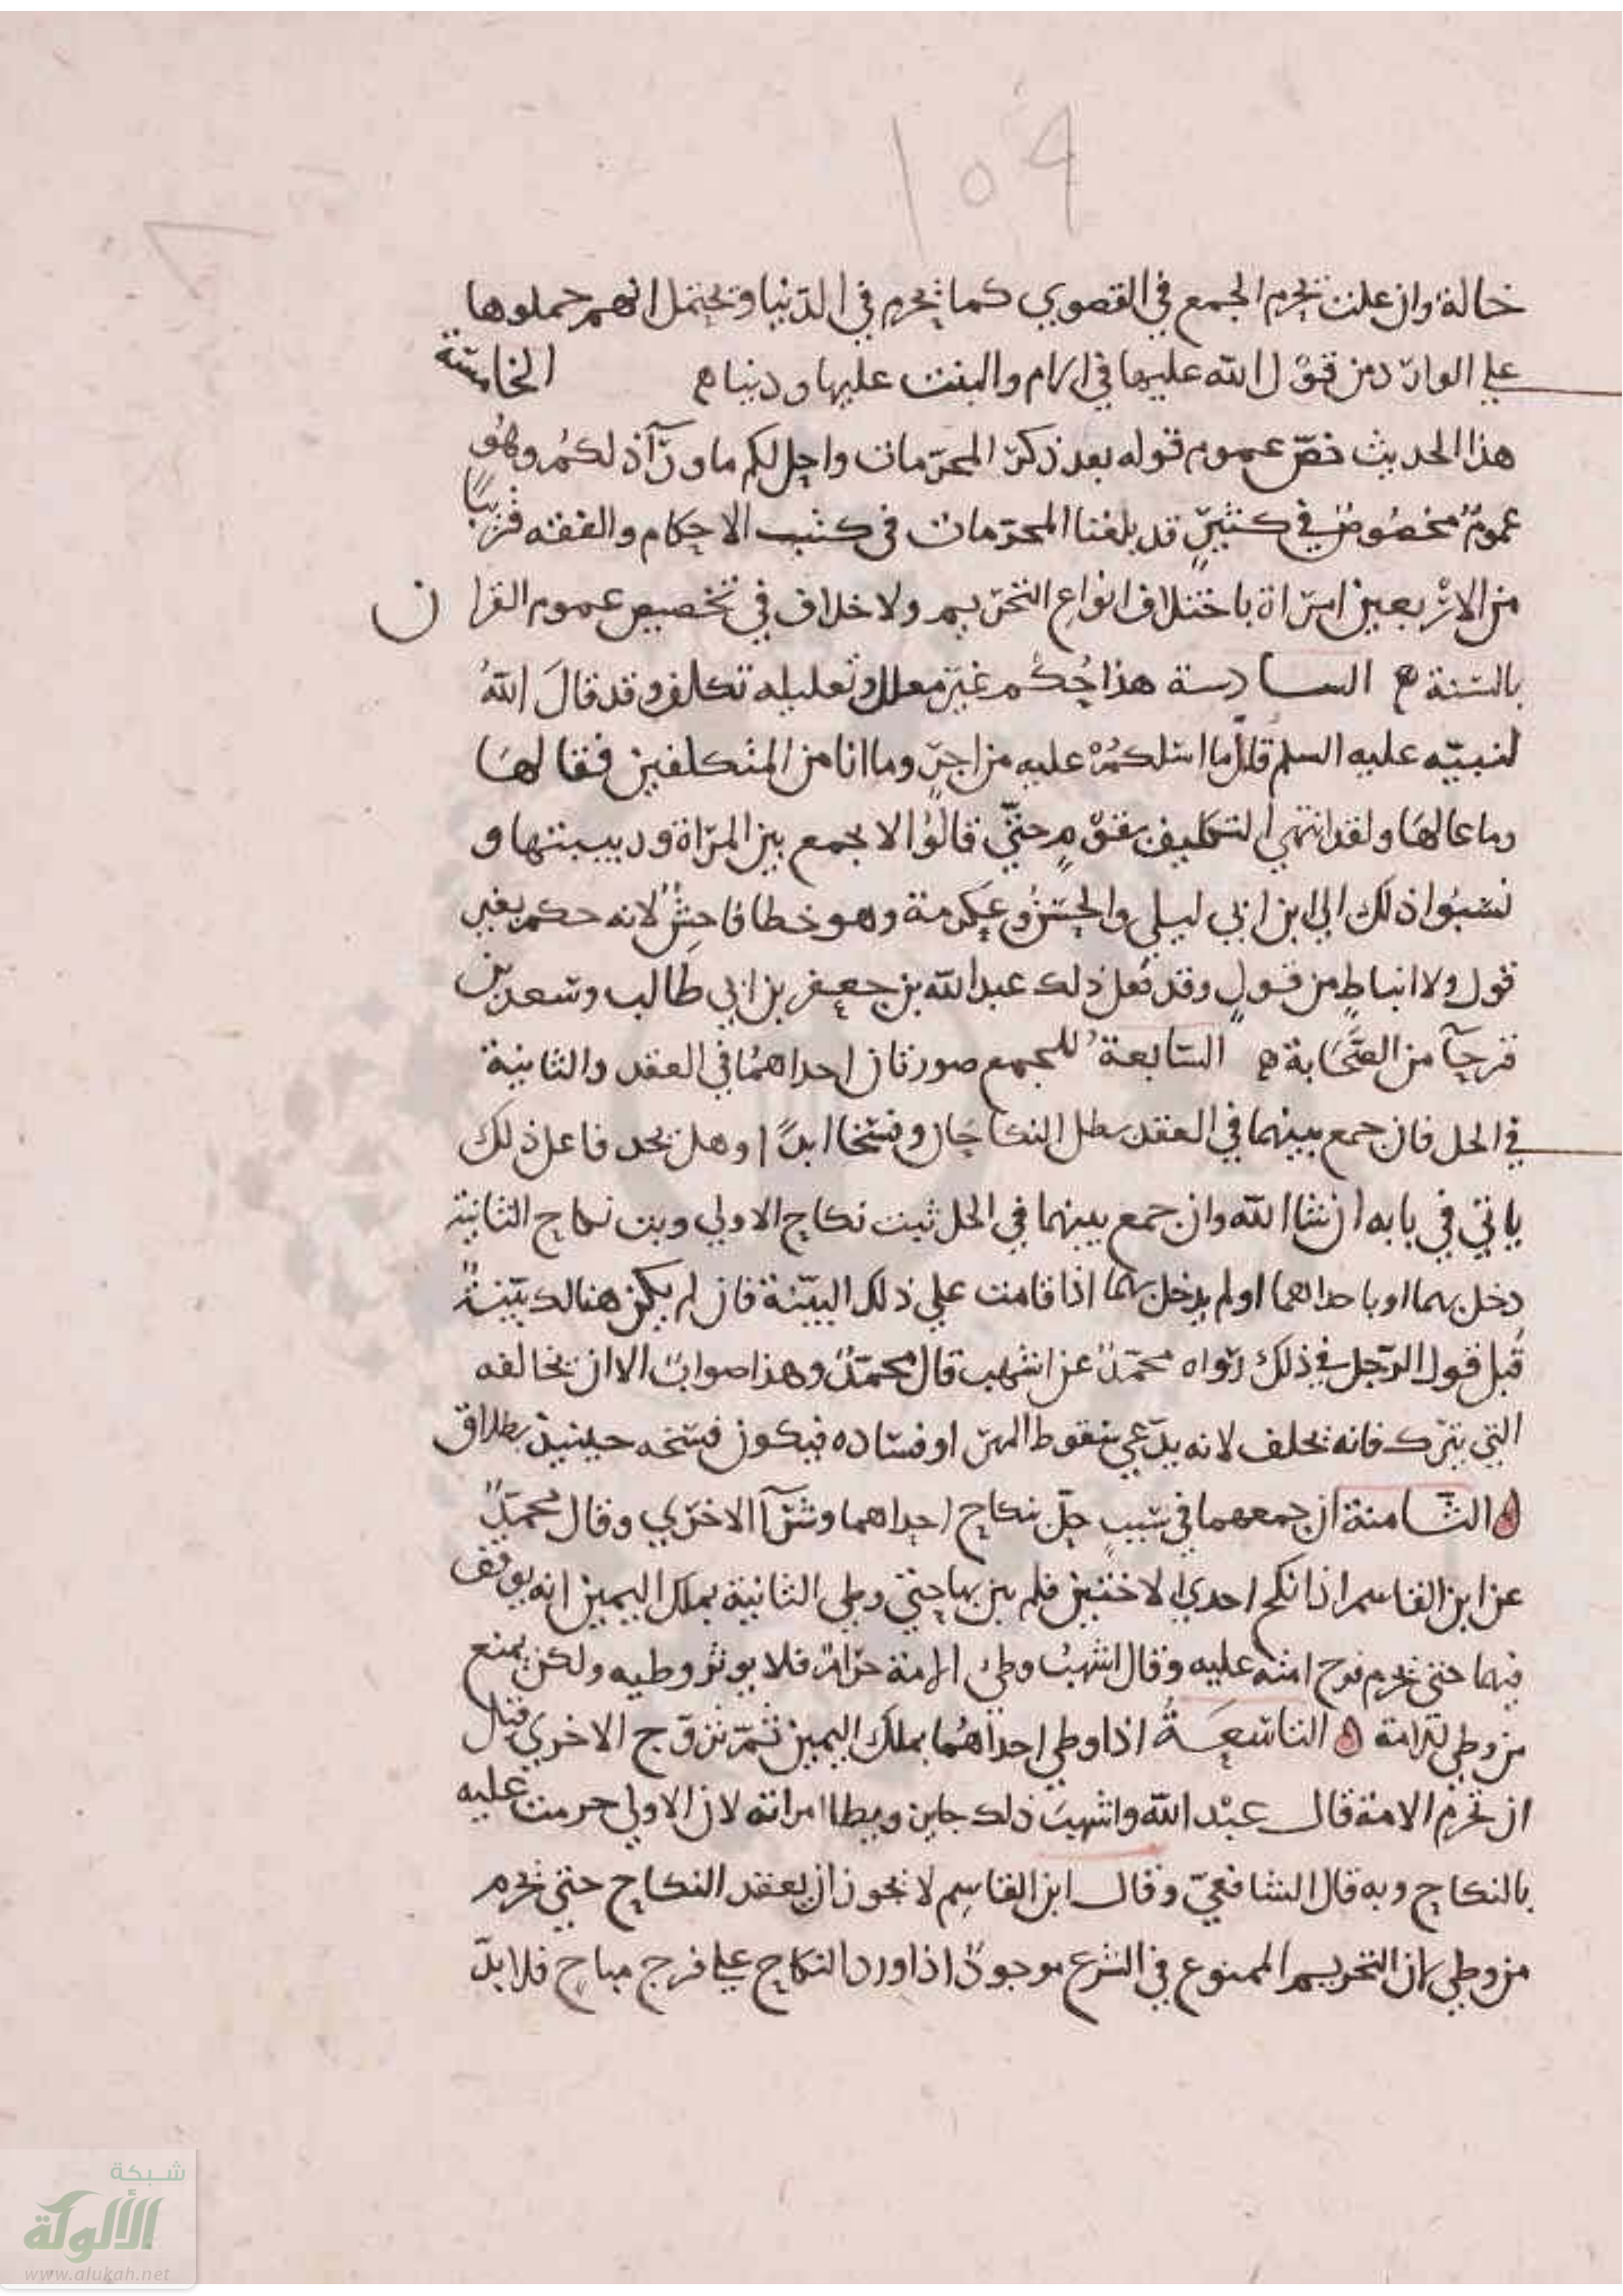 ١٥٩
خالة وان علت تحرم الجمع في القصوي كما تحرم في الدنيا وتحتمل انهم حملوها
علي الوارد من قول الله عليها في الام والبنت عليها ودنياه الخامسة
هذا الحديث خص عموم قوله بعد ذكر المحرمات واحل لكم ما ورآ ذلكم وهو
عموم مخصوص في كثير قد بلغنا المحرمات في كتب الاحكام والفقه قريبا
من الاربعين امراة باختلاف انواع التحريم ولا خلاف في تخصيص عموم القران
بالسنة ه السادسة هذا حكم غير معلل وتعليله تكلف وقد قال الله
لنبيه عليه السلم قل ما اسلكم عليه من اجر وما انا من المتكلفين فقالها
وما عالها ولقد انتهي التكليف بقوم حتي قالوا لا يجمع بين المراة وربيبتها و
نسبوا ذلك الي ابن ابي ليلي والحسن وعكرمة وهو خطا فاحش لانه حكم بغير
قول ولا انباط من قول وقد فعل ذلك عبد الله بن جعفر بن ابي طالب وسعد بن
قرحآ من الصحابة ه السابعة للجمع صورتان احداهما في العقد والثانية
في الحل فان جمع بينهما في العقد بطل النكاحان وفسخا ابدا وهل يحد فاعل ذلك
ياتي في بابه ان شا الله وان جمع بينهما في الحل ثبت نكاح الاولي وبت نكاح الثانية
دخل بهما او باحداهما او لم يدخل بهما اذا قامت علي ذلك البينة فان لم يكن هنالك بينة
قبل قول الرجل في ذلك رواه محمد عن اشهب قال محمد وهذا صواب الا ان تخالفه
التي يترك فانه يحلف لانه يدعي سقوط المهر او فساده فيكون فسخه حينيذ بطلاق
ه الثامنة ان جمعهما في سبب حل نكاح احداهما وشرآ الاخري وقال محمد
عن ابن القاسم اذا نكح احدي الاختين فلم يبن بها حتي وطي الثانية بملك اليمين انه يوقف
فيهما حتي تحرم فرج امته عليه وقال اشهب وطي الامة حرام فلا يوثر وطيه ولكن يمنع
من وطي للامة ه التاسعة اذا وطي احداهما بملك اليمين ثم تزوج الاخري قبل
ان تحرم الامة قال عبد الله واشهب ذلك جاين ويطا امراته لان الاولي حرمت عليه
بالنكاح وبه قال الشافعي وقال ابن القاسم لا تجوز ان يعقد النكاح حتي تحرم
من وطي لان التحريم الممنوع في الشرع موجود اذا ورد النكاح علي فرج مباح فلا بد
شبكة
الألوكة
www.alukah.net